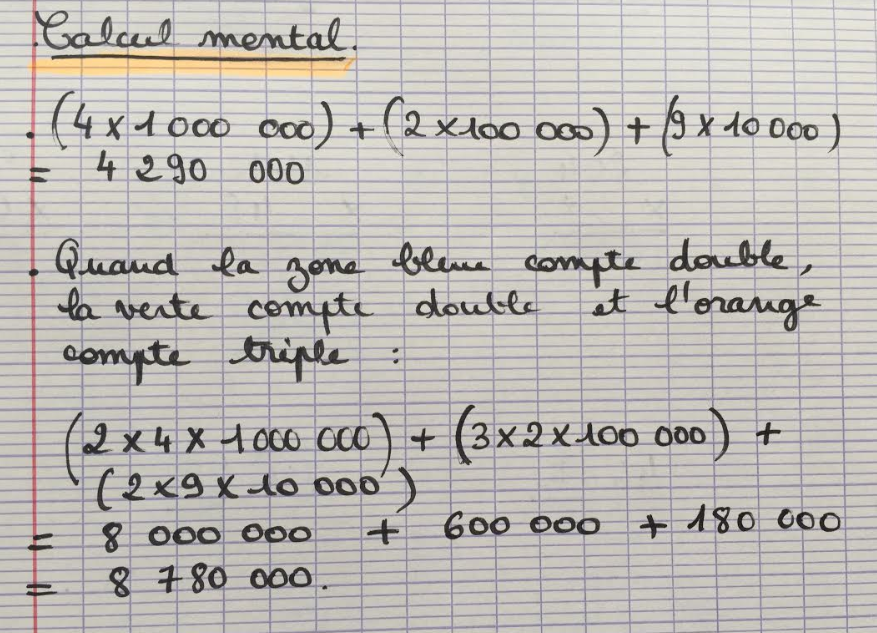 Calcul mental.
. (4 × 1 000 000) + (2 × 100 000) + (9 × 10 000)
= 4 290 000
. Quand la zone bleue compte double,
la verte compte double et l'orange
compte triple :
(2 × 4 × 1 000 000) + (3 × 2 × 100 000) +
(2 × 9 × 10 000)
= 8 000 000 + 600 000 + 180 000
= 8 780 000.